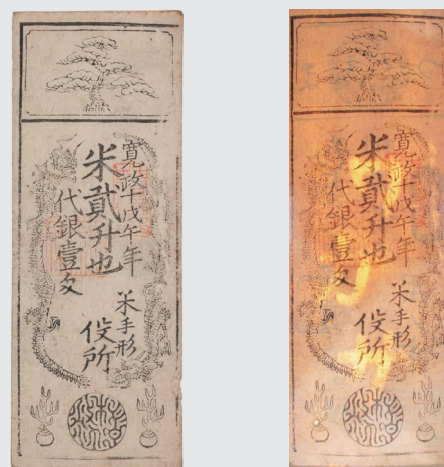 寛政十戊午年
米貳升也
代銀壹匁
米手形
役所
寛政十戊午年
米貳升也
代銀壹匁
米手形
役所